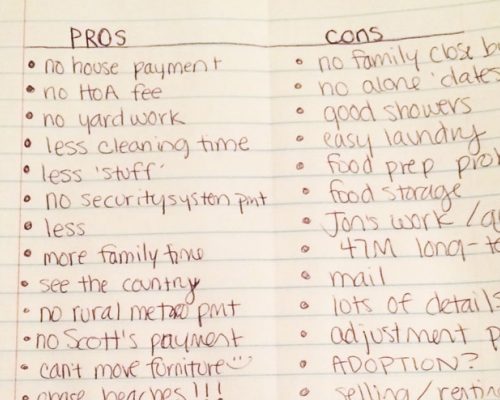 PROS
• no house payment
• no HOA fee
• no yardwork
• less cleaning time
• less 'stuff'
• no securitysystem pmt
• less
• more family time
• see the country
• no rural metro pmt
• no Scott's payment
• can't move furniture
beaches!!!
CONS
• no family close
• no alone 'dates
• good showers
• easy laundry
• food prep
• food storage
• Jon's work /
• 47M long-
• mail
• lots of details
• adjustment p
• ADOPTION?
• selling/renting